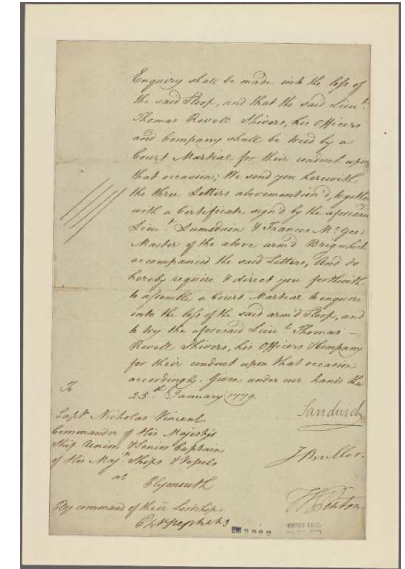 Enquiry shall be made into the loſs of
the said Sloop, and that the said Lieut.
Thomas Revell Shivers, his Officers
and Company shall be tried by a
Court Martial for their conduct upon
that occasion; We send you herewith
the three Letters abovemention'd, together
with a Certificate sign'd by the aforesaid
Lieut. Lumsdain & Francis McGee
Master of the above arm'd Brig which
accompanied the said Letters, And do
hereby require & direct you forthwith
to aſsemble a Court Martial to enquire
into the loſs of the said arm'd Sloop, and
to try the aforesaid Lieut. Thomas
Revell Shivers, his Officers & Company
for their conduct upon that occasion
accordingly. Given under our hands the
23d. January 1779.
Sandwich
J Buller
To
Capt. Nicholas Vincent
Commander of His Majesty's
Ship Union & Senior Captain
of His Maj's Ships & Vessels
at
Plymouth
By command of their Lordships
Ph Stephens